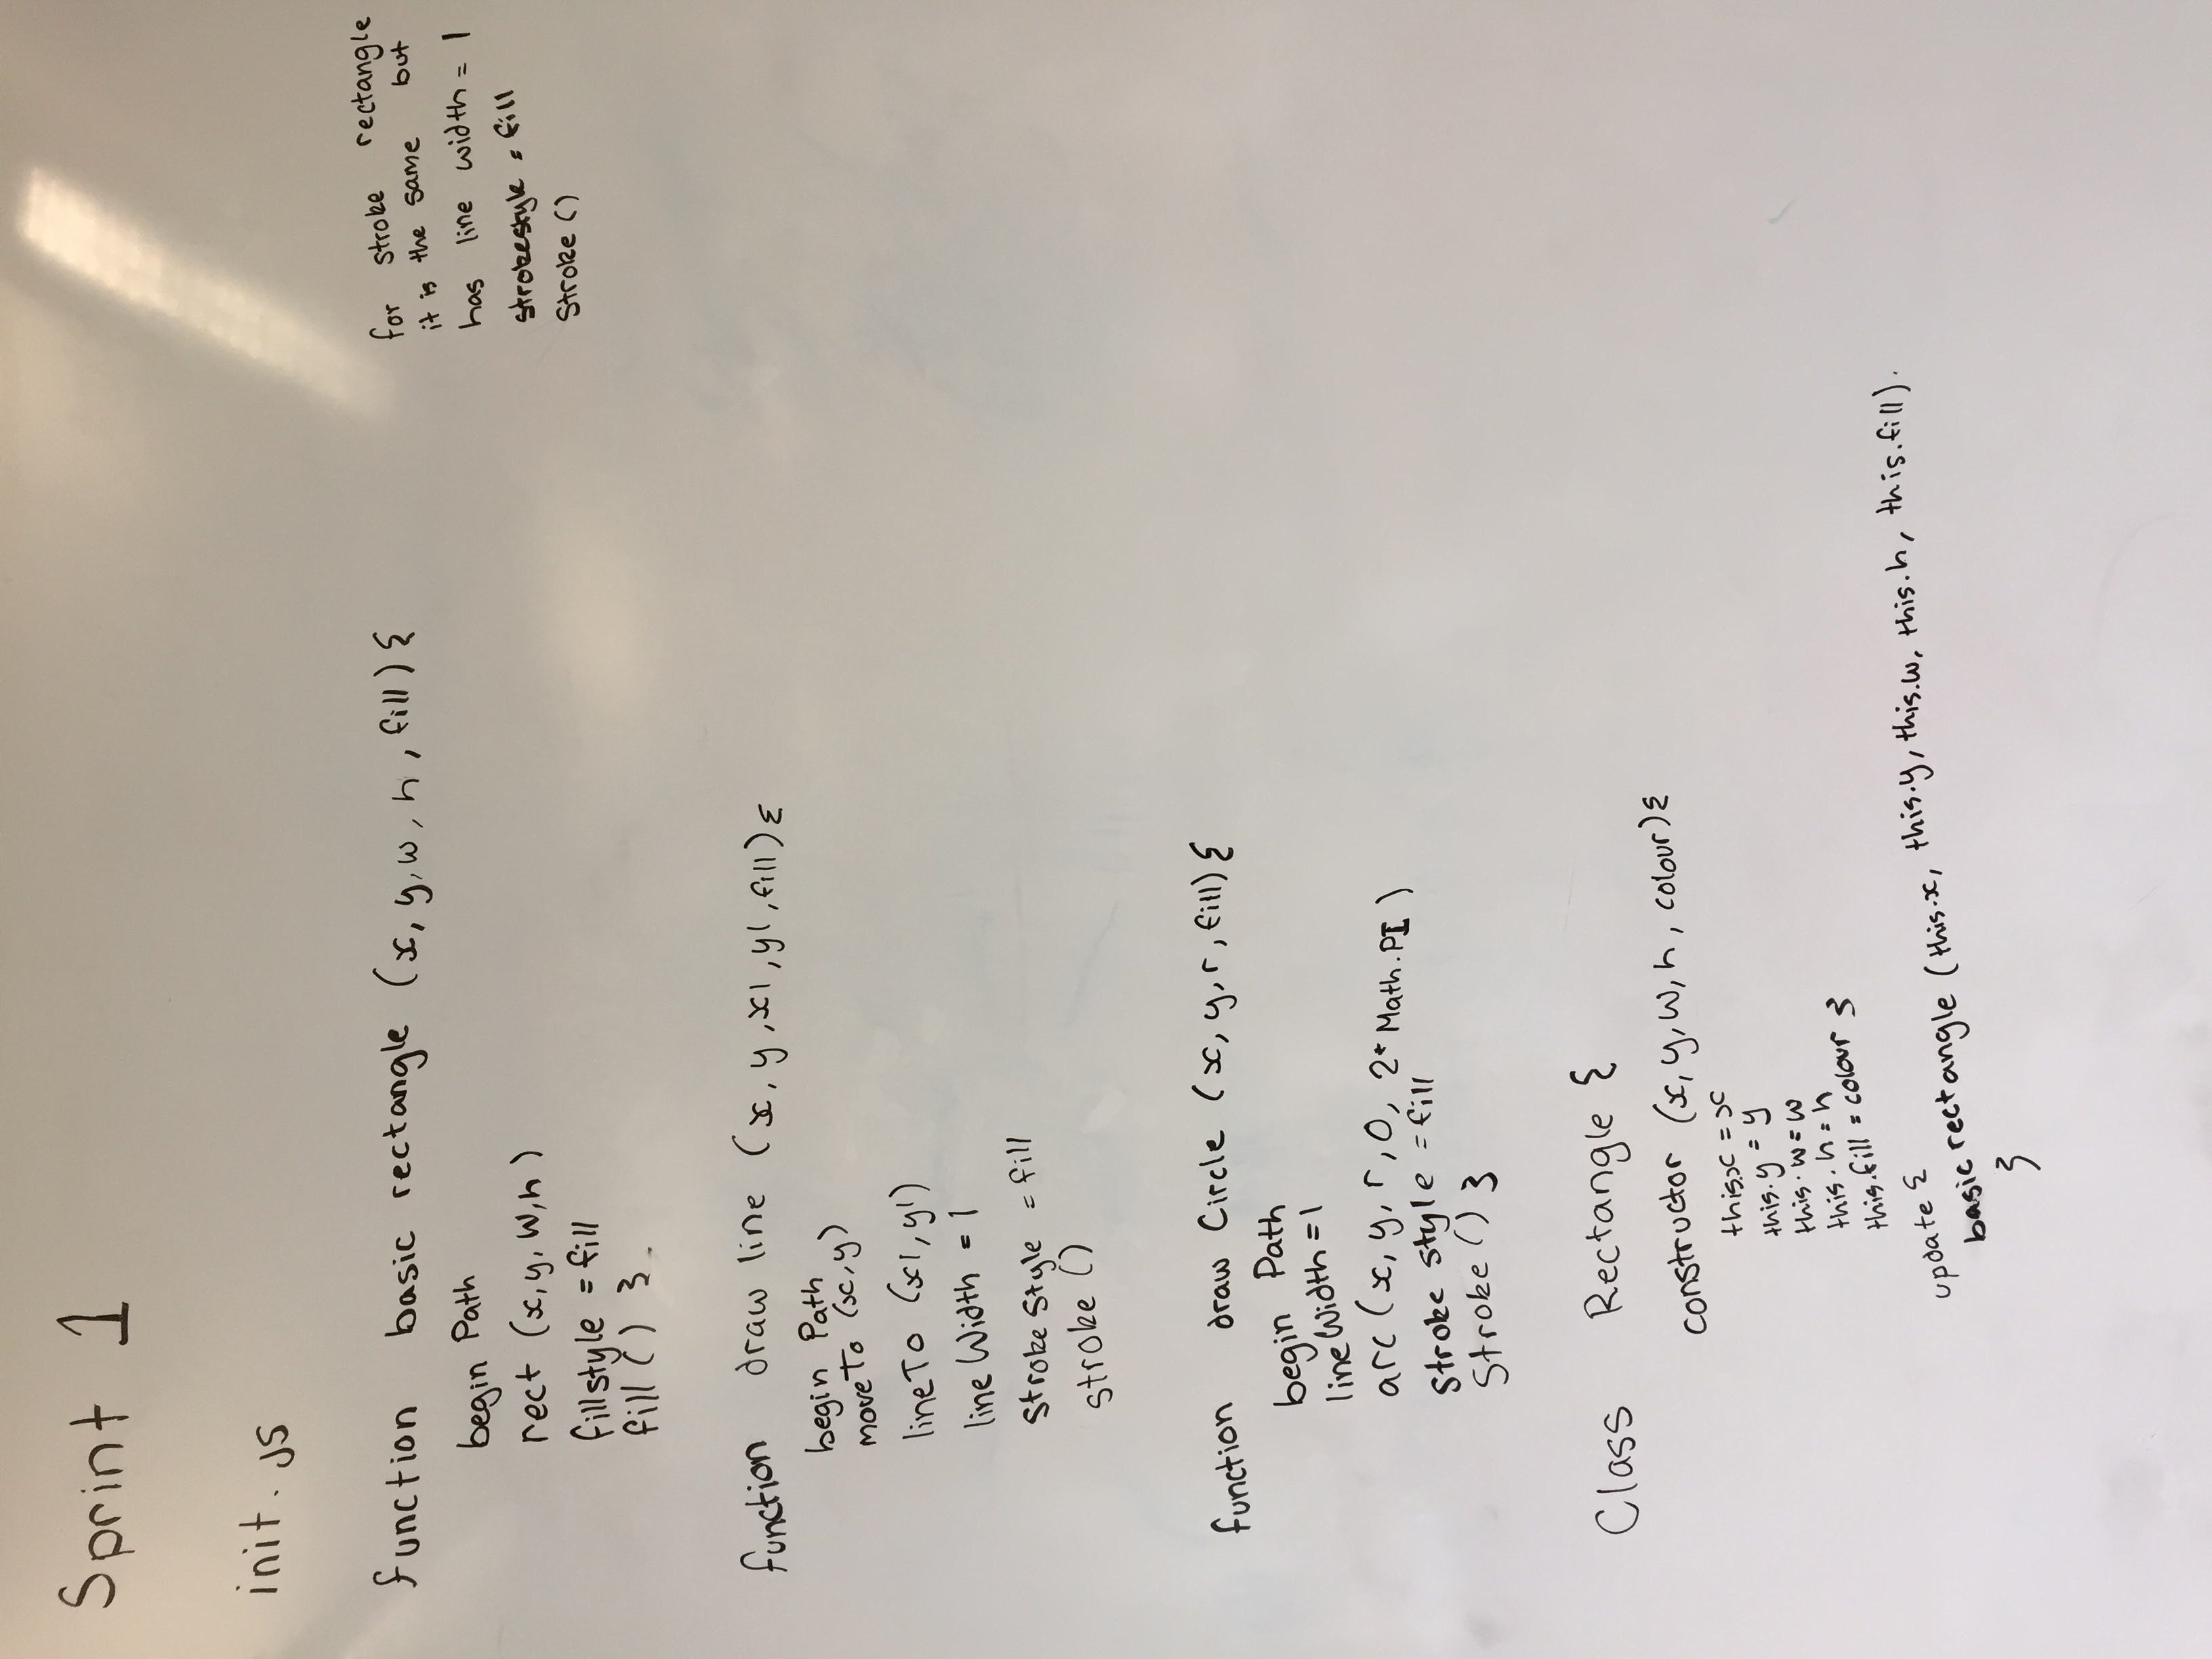 Sprint 1
init.js
function basic rectangle (x, y, w, h, fill) {
begin Path
rect (x, y, w, h)
fillstyle = fill
fill () }
for stroke rectangle
it is the same but
has line width = 1
strokestyle = fill
Stroke ()
function draw line (x, y, x1, y1, fill) {
begin Path
moveTo (x, y)
lineTo (x1, y1)
lineWidth = 1
Stroke Style = fill
stroke ()
function draw Circle (x, y, r, fill) {
begin Path
lineWidth = 1
arc (x, y, r, 0, 2* Math.PI)
Stroke style = fill
Stroke () }
Class Rectangle {
constructor (x, y, w, h, colour) {
this.x = x
this.y = y
this.w = w
this.h = h
this.fill = colour }
update {
basic rectangle (this.x, this.y, this.w, this.h, this.fill).
}